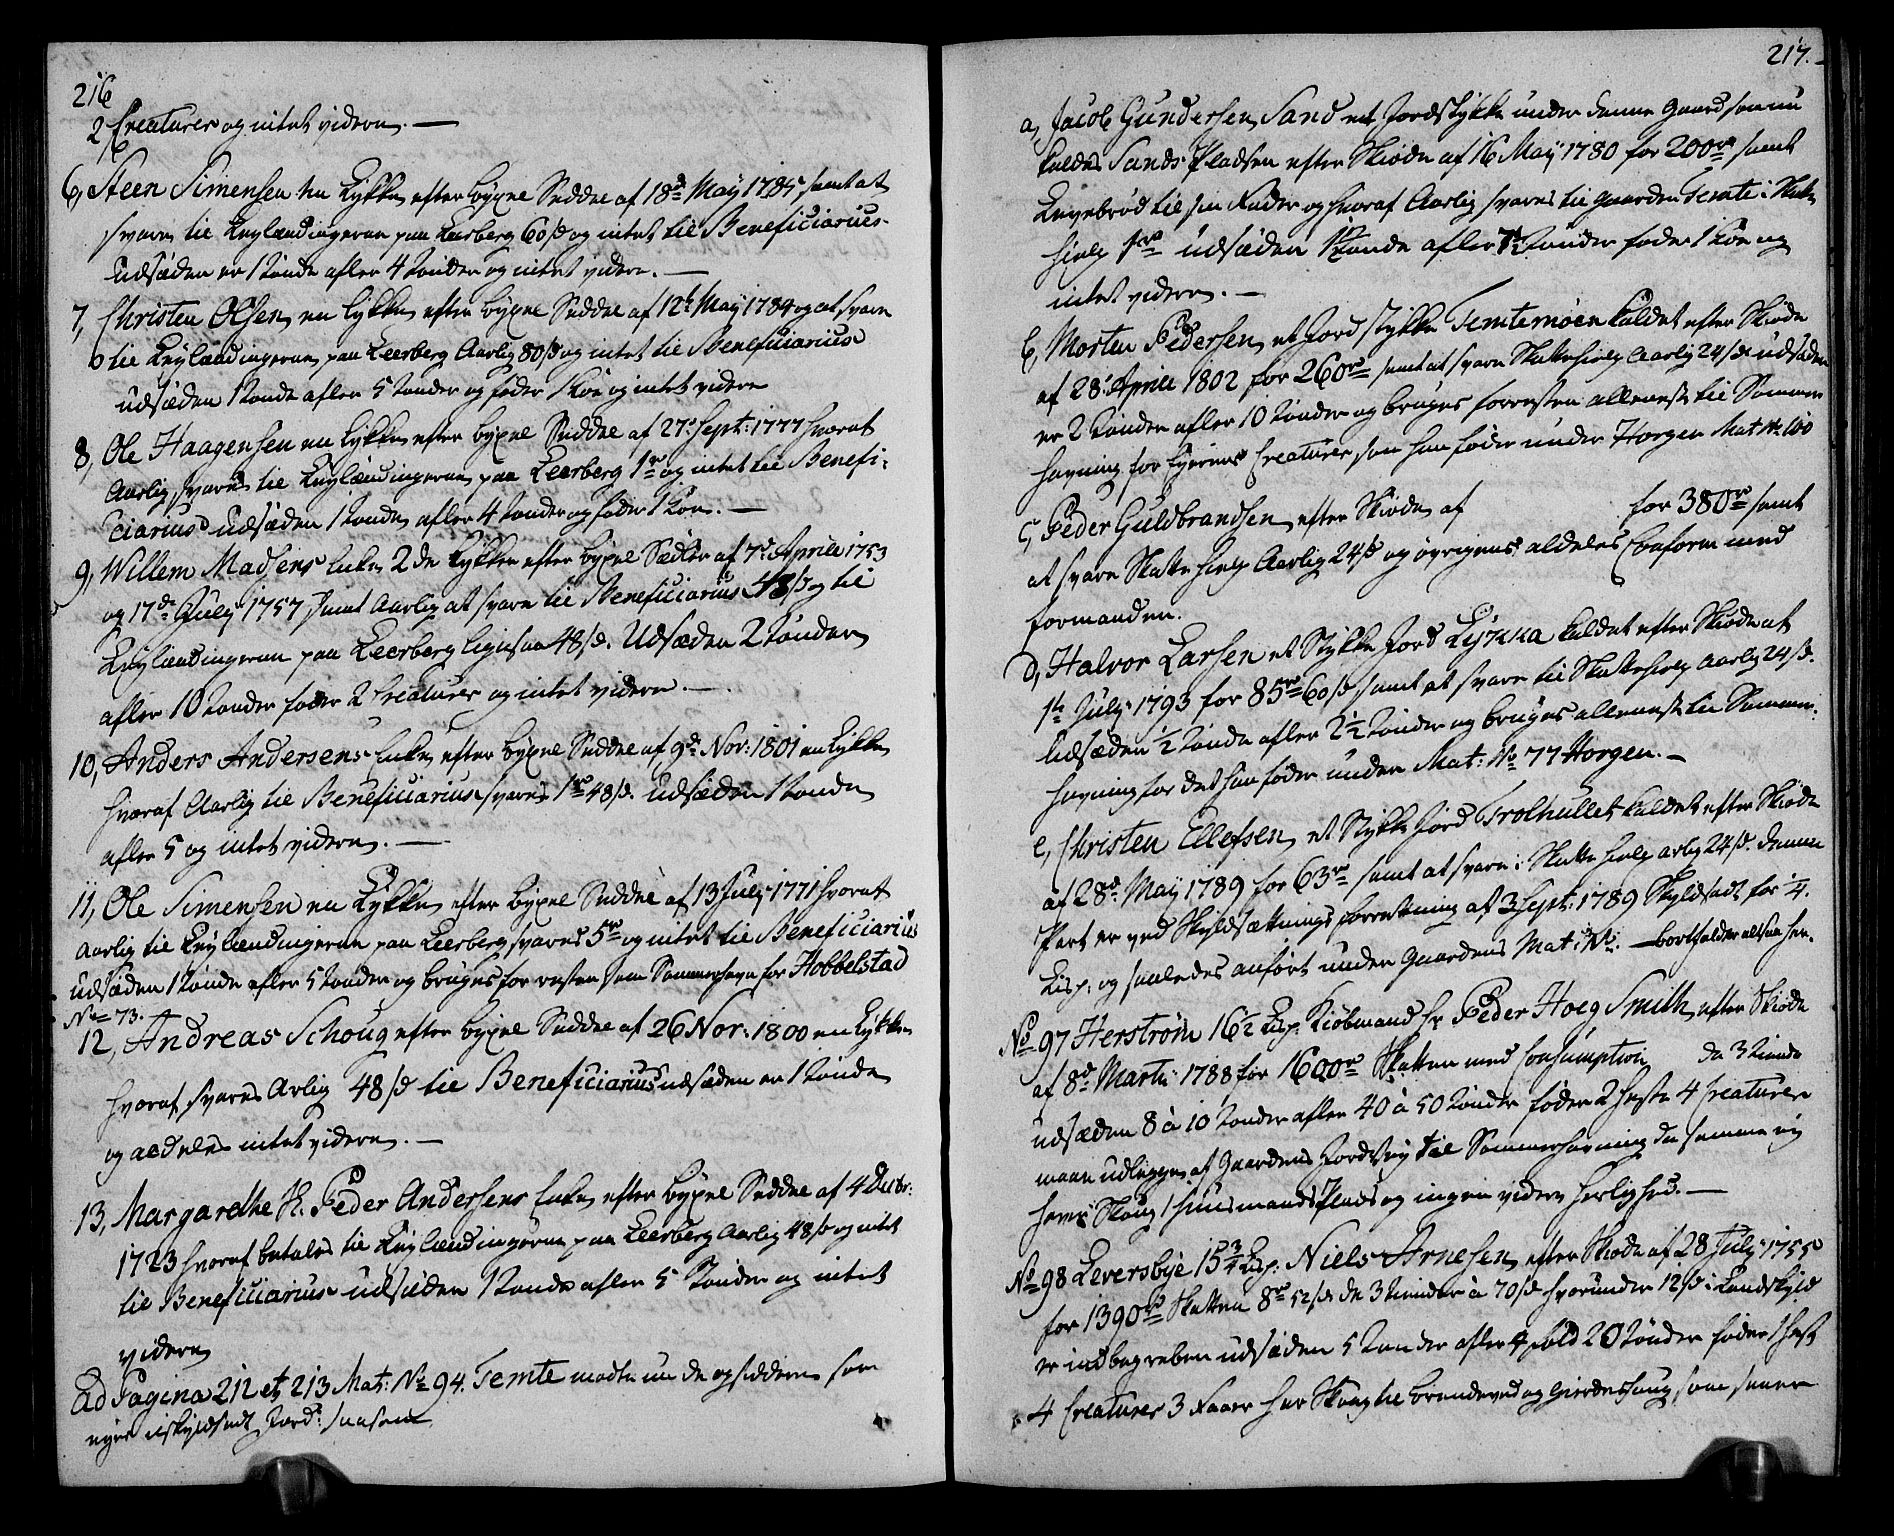 216
2 Creaturer og intet videre. —
6, Steen Simensen en Løkke efter bøxel Seddel af 18de May 1785 samt at
svare til Leylændingerne paa Leerberg 60 s og intet til Beneficiarius
udsæden er 1 Tønde afler 4 Tønder og intet videre. —
7, Christen Olsen en Løkke efter bøxel Seddel af 12te May 1784 og at svare
til Leylændingerne paa Leerberg Aarlig 80 s og intet til Beneficiarius
udsæden 1 Tønde afler 5 Tønder og føder 1 Koe og intet videre
8, Ole Haagensen en Løkke efter bøxel Seddel af 27 Sept: 1777 hvoraf
Aarlig svares til Leylændingerne paa Leerberg 1 r og intet til Benefi-
ciarius udsæden 1 Tønde afler 4 Tønder og føder 1 Koe. —
9, Willem Madsens Enke 2de Løkker efter bøxel Sedler af 7de Aprile 1753
og 17de July 1757, samt Aarlig at svare til Beneficiarius 48 s og til
Leylændingerne paa Leerberg ligesaa 48 s. Udsæden 2 Tønder
afler 10 Tønder føder 2 Creaturer og intet videre. —
10, Anders Andersens Enke efter bøxel Seddel af 9de Nov: 1801 en Løkke
hvoraf Aarlig til Beneficiarius svares 1 r 48 s. udsæden 1 Tønde
afler 5 og intet videre. —
11, Ole Simensen en Løkke efter bøxel Seddel af 13 July 1771 hvoraf
Aarlig til Leylændingerne paa Leerberg svares 5 r og intet til Beneficiarius
udsæden 1 Tønde afler 5 Tønder og bruges for resten som Sommerhavn for Hobbelstad
No 73. —
12, Andreas Schoug efter bøxel Seddel af 26 Nov: 1800 en Løkke
hvoraf svares Arlig 48 s til Beneficiarius udsæden er 1 Tønde
og aldeles intet videre. —
13, Margarethe Sl. Peder Andersens Enke efter bøxel Seddel af 4 Decbr:
1723 hvoraf betales til Leylændingerne paa Leerberg Aarlig 48 s og intet
til Beneficiarius udsæden 1 Tønde afler 5 Tønder og intet
videre
Ad Pagina 212 et 213 Mat: No 94. Temte modte nu de opsiddere som
eyer uskyldsadt Jord: saasom
217.
a, Jacob Gundersen Sand et Jordstykke under denne Gaard som nu
kaldes Sands Pladsen efter Skiøde af 16 May 1780 for 200 r samt
Levebrød til sin Fader og hvoraf Aarlig svares til gaarden Temte i Skatte
hielp 1 r udsæden 1 Tønde afler 7½ Tønder føder 1 Koe og
intet videre. —
b, Morten Pedersen et Jordstykke Temtemoen kaldet efter Skiøde
af 28 Aprile 1802 for 260 r samt at svare Skattehielp Aarlig 24 s udsæden
er 2 Tønder afler 10 Tønder og bruges forresten alleneste til Sommer
havning for Eyerens Creaturer som han føder under Horgen Mat No 100
c, Peder Guldbrandsen efter Skiøde af for 380 r samt
at svare Skattehielp Aarlig 24 s og øvrigens aldeles Conform med
formanden.
d, Halvor Larsen et Stykke Jord Lykka kaldet efter Skiøde af
1te July 1793 for 85 r 60 s, samt at svare til Skattehielp Aarlig 24 s.
Udsæden ½ Tønde afler 2½ Tønder og bruges alleneste til Sommer-
havning for det han føder under Mat: No 77 Horgen. —
e, Christen Ellefsen et Stykke Jord Trolhullet kaldet efter Skiøde
af 28de May 1789 for 63 r samt at svare i Skattehielp arlig 24 s. denne
Part er ved Skyldsætnings forretning af 3 Sept: 1789 Skyldsadt for ¼.
Lisp: og saaledes anført under Gaardens Mat: No. — bortfalder altsaa her.
No 97 Herstrøm 16½ Lisp. Kiøbmand Hr Peder Hoeg Smith efter Skiøde
af 8de Marti 1788 for 1600 r Skatten med Consumption da 3 Tiende
udsæden 8 à 10 Tønder afler 40 à 50 Tønder føder 2 Heste 4 Creaturer
maae udlegge af Gaardens Jordevey til Sommerhavning da samme ey
haver Skoug 1 huusmands Plads og ingen videre herlighed. —
No 98 Leversbye 15¾ Lisp: Niels Arnesen efter Skiøde af 28 July 1755
for 1390 r Skatten 8 r 52 s de 3 Tiender à 70 s hvorunder 12 s i Landskyld
er indbegreben udsæden 5 Tønder afler 4 fold 20 Tønder føder 1 Hest
4 Creaturer 3 Faaer har Skoug til brendeved og gierdeskoug som svarer